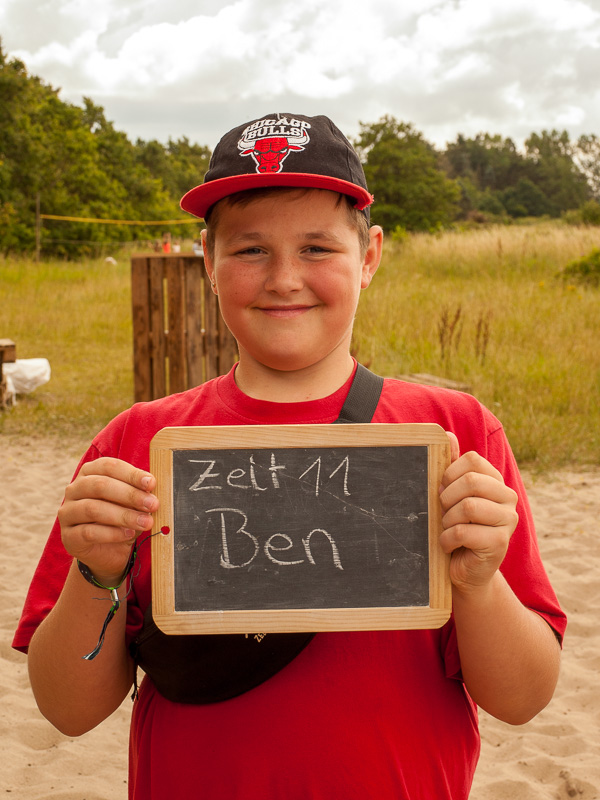 CHICAGO
BULLS
Zelt 11
Ben